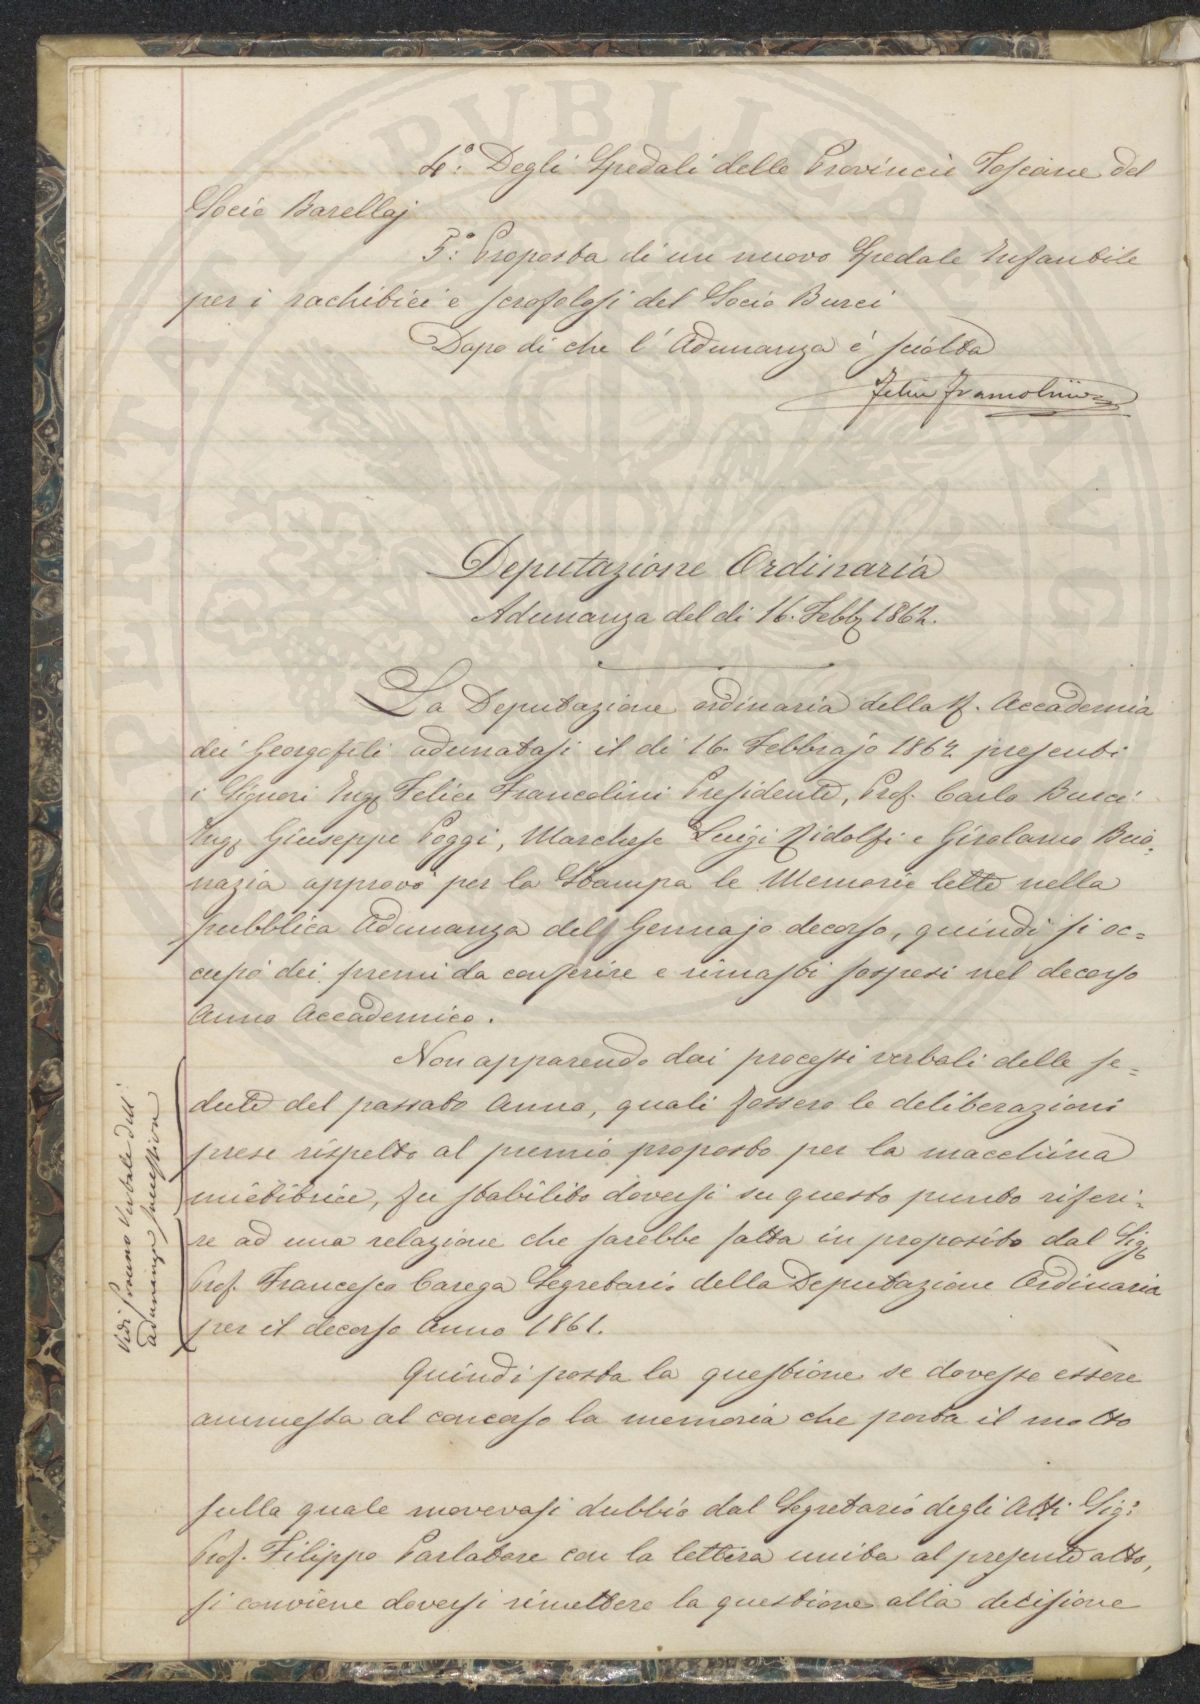 4.° Degli Spedali delle Provincie Toscane del
Socio Barellaj
5.° Proposta di un nuovo Spedale Infantile
per i rachitici e scrofolosi del Socio Burci
Dopo di che l'Adunanza è sciolta
Felice Francolini
Deputazione Ordinaria
Adunanza del di 16. Febb. 1862.
La Deputazione ordinaria della R. Accademia
dei Georgofili adunatasi il di 16. Febbrajo 1862 presenti
i Signori Ing. Felice Francolini Presidente, Prof. Carlo Burci
Ing. Giuseppe Poggi, Marchese Luigi Ridolfi e Girolamo Buo-
nazia approvò per la Stampa le Memorie lette nella
pubblica Adunanza del Gennajo decorso, quindi si oc=
cupò dei premi da conferire e rimasti sospesi nel decorso
Anno Accademico.
Non apparendo dai processi verbali delle se=
dute del passato Anno, quali fossero le deliberazioni
prese rispetto al premio proposto per la macchina
mietitrice, fu stabilito doversi su questo punto riferi-
re ad una relazione che sarebbe fatta in proposito dal Sig.
Prof. Francesco Carega Segretario della Deputazione Ordinaria
per il decorso Anno 1861.
Vedi Processo Verbale dell'
adunanza successiva
Quindi posta la questione se dovesse essere
ammessa al concorso la memoria che porta il motto
sulla quale movevasi dubbio dal Segretario degli Atti Sig.
Prof. Filippo Parlatore con la lettera unita al presente atto,
si conviene doversi rimettere la questione alla decisione